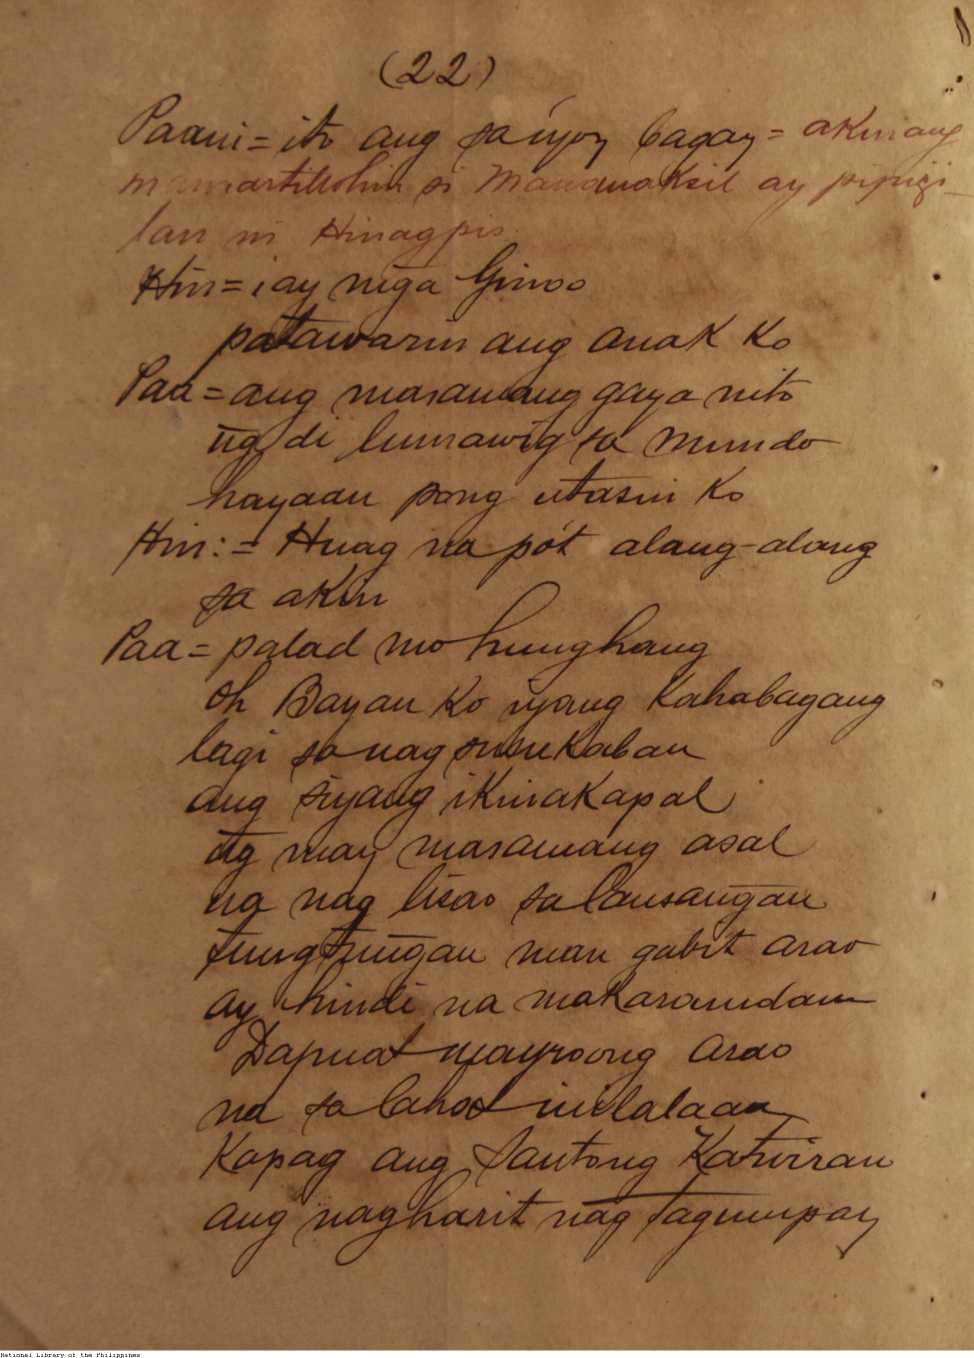 (22)
Paani = ito ang sa iyoy bagay = akmang
mamartillohin si Mananaksil ay pipigi-
lan ni Hinagpis
Hin = ¡ay nĩga Ginoo
patawarin ang anak ko
Paa = ang masamang gaya nito
ũg di lumawig sa mundo
hayaan pong utasin ko
Hin: = Huag na pót alang-alang
sa akin
Paa = palad mo hunghang
oh Bayan ko iyang kahabagang
lagi sa nag susukaban
ang siyang ikinakapal
ñg may masamang asal
na nag lisao sa lansanḡan
tungtunḡan man gabit arao
ay hindi na makaramdam
Dapuat mayroong arao
na sa lahat inilalaan
Kapag ang Santong Katwiran
ang nagharit nag tagumpay
National Library of the Philippines